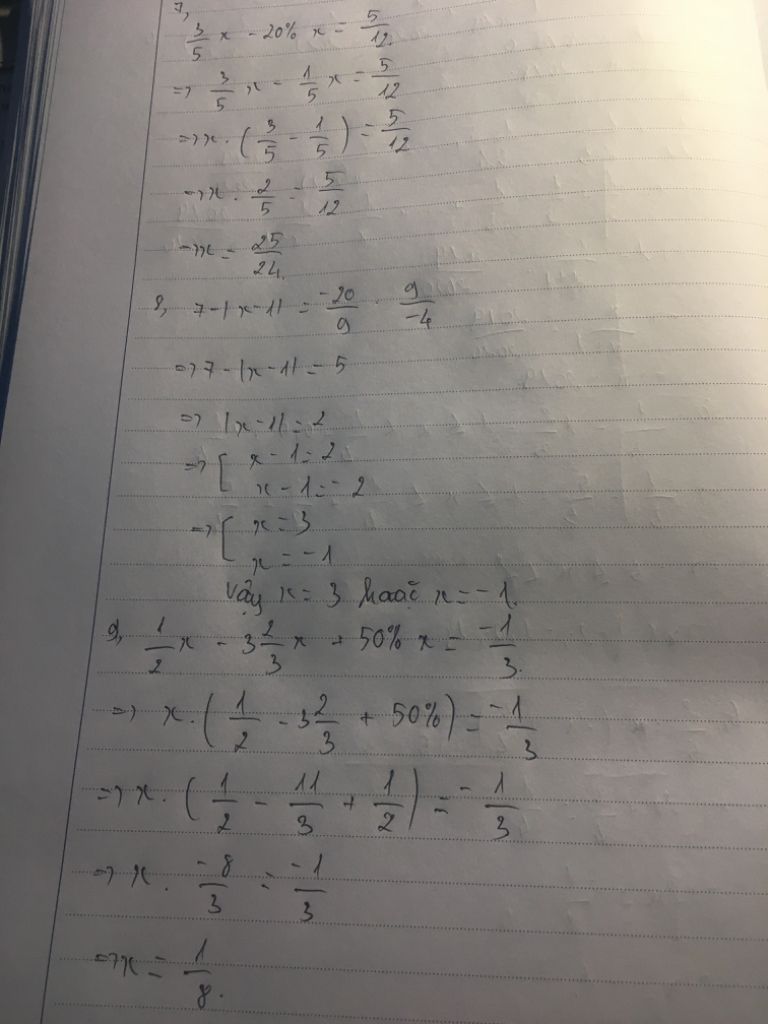 7,
3/5 x - 20% x = 5/12.
=> 3/5 x - 1/5 x = 5/12
=> x . (3/5 - 1/5) = 5/12
=> x . 2/5 = 5/12
=> x = 25/24.
8, 7 - |x - 1| = -20/9 . 9/-4
=> 7 - |x - 1| = 5
=> |x - 1| = 2
=> [ x - 1 = 2
x - 1 = -2
=> [ x = 3
x = -1
Vậy x = 3 hoặc x = -1.
9, 1/2 x - 3 2/3 x + 50% x = -1/3.
=> x . (1/2 - 3 2/3 + 50%) = -1/3
=> x . (1/2 - 11/3 + 1/2) = -1/3
=> x . -8/3 = -1/3
=> x = 1/8.